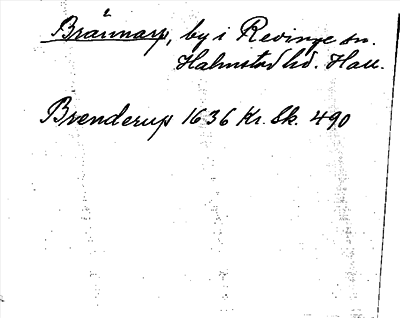 Brännarp, by i Revinge sn.
Halmstad hd. Hall.
Brenderup 1636 Kr. Sk. 490